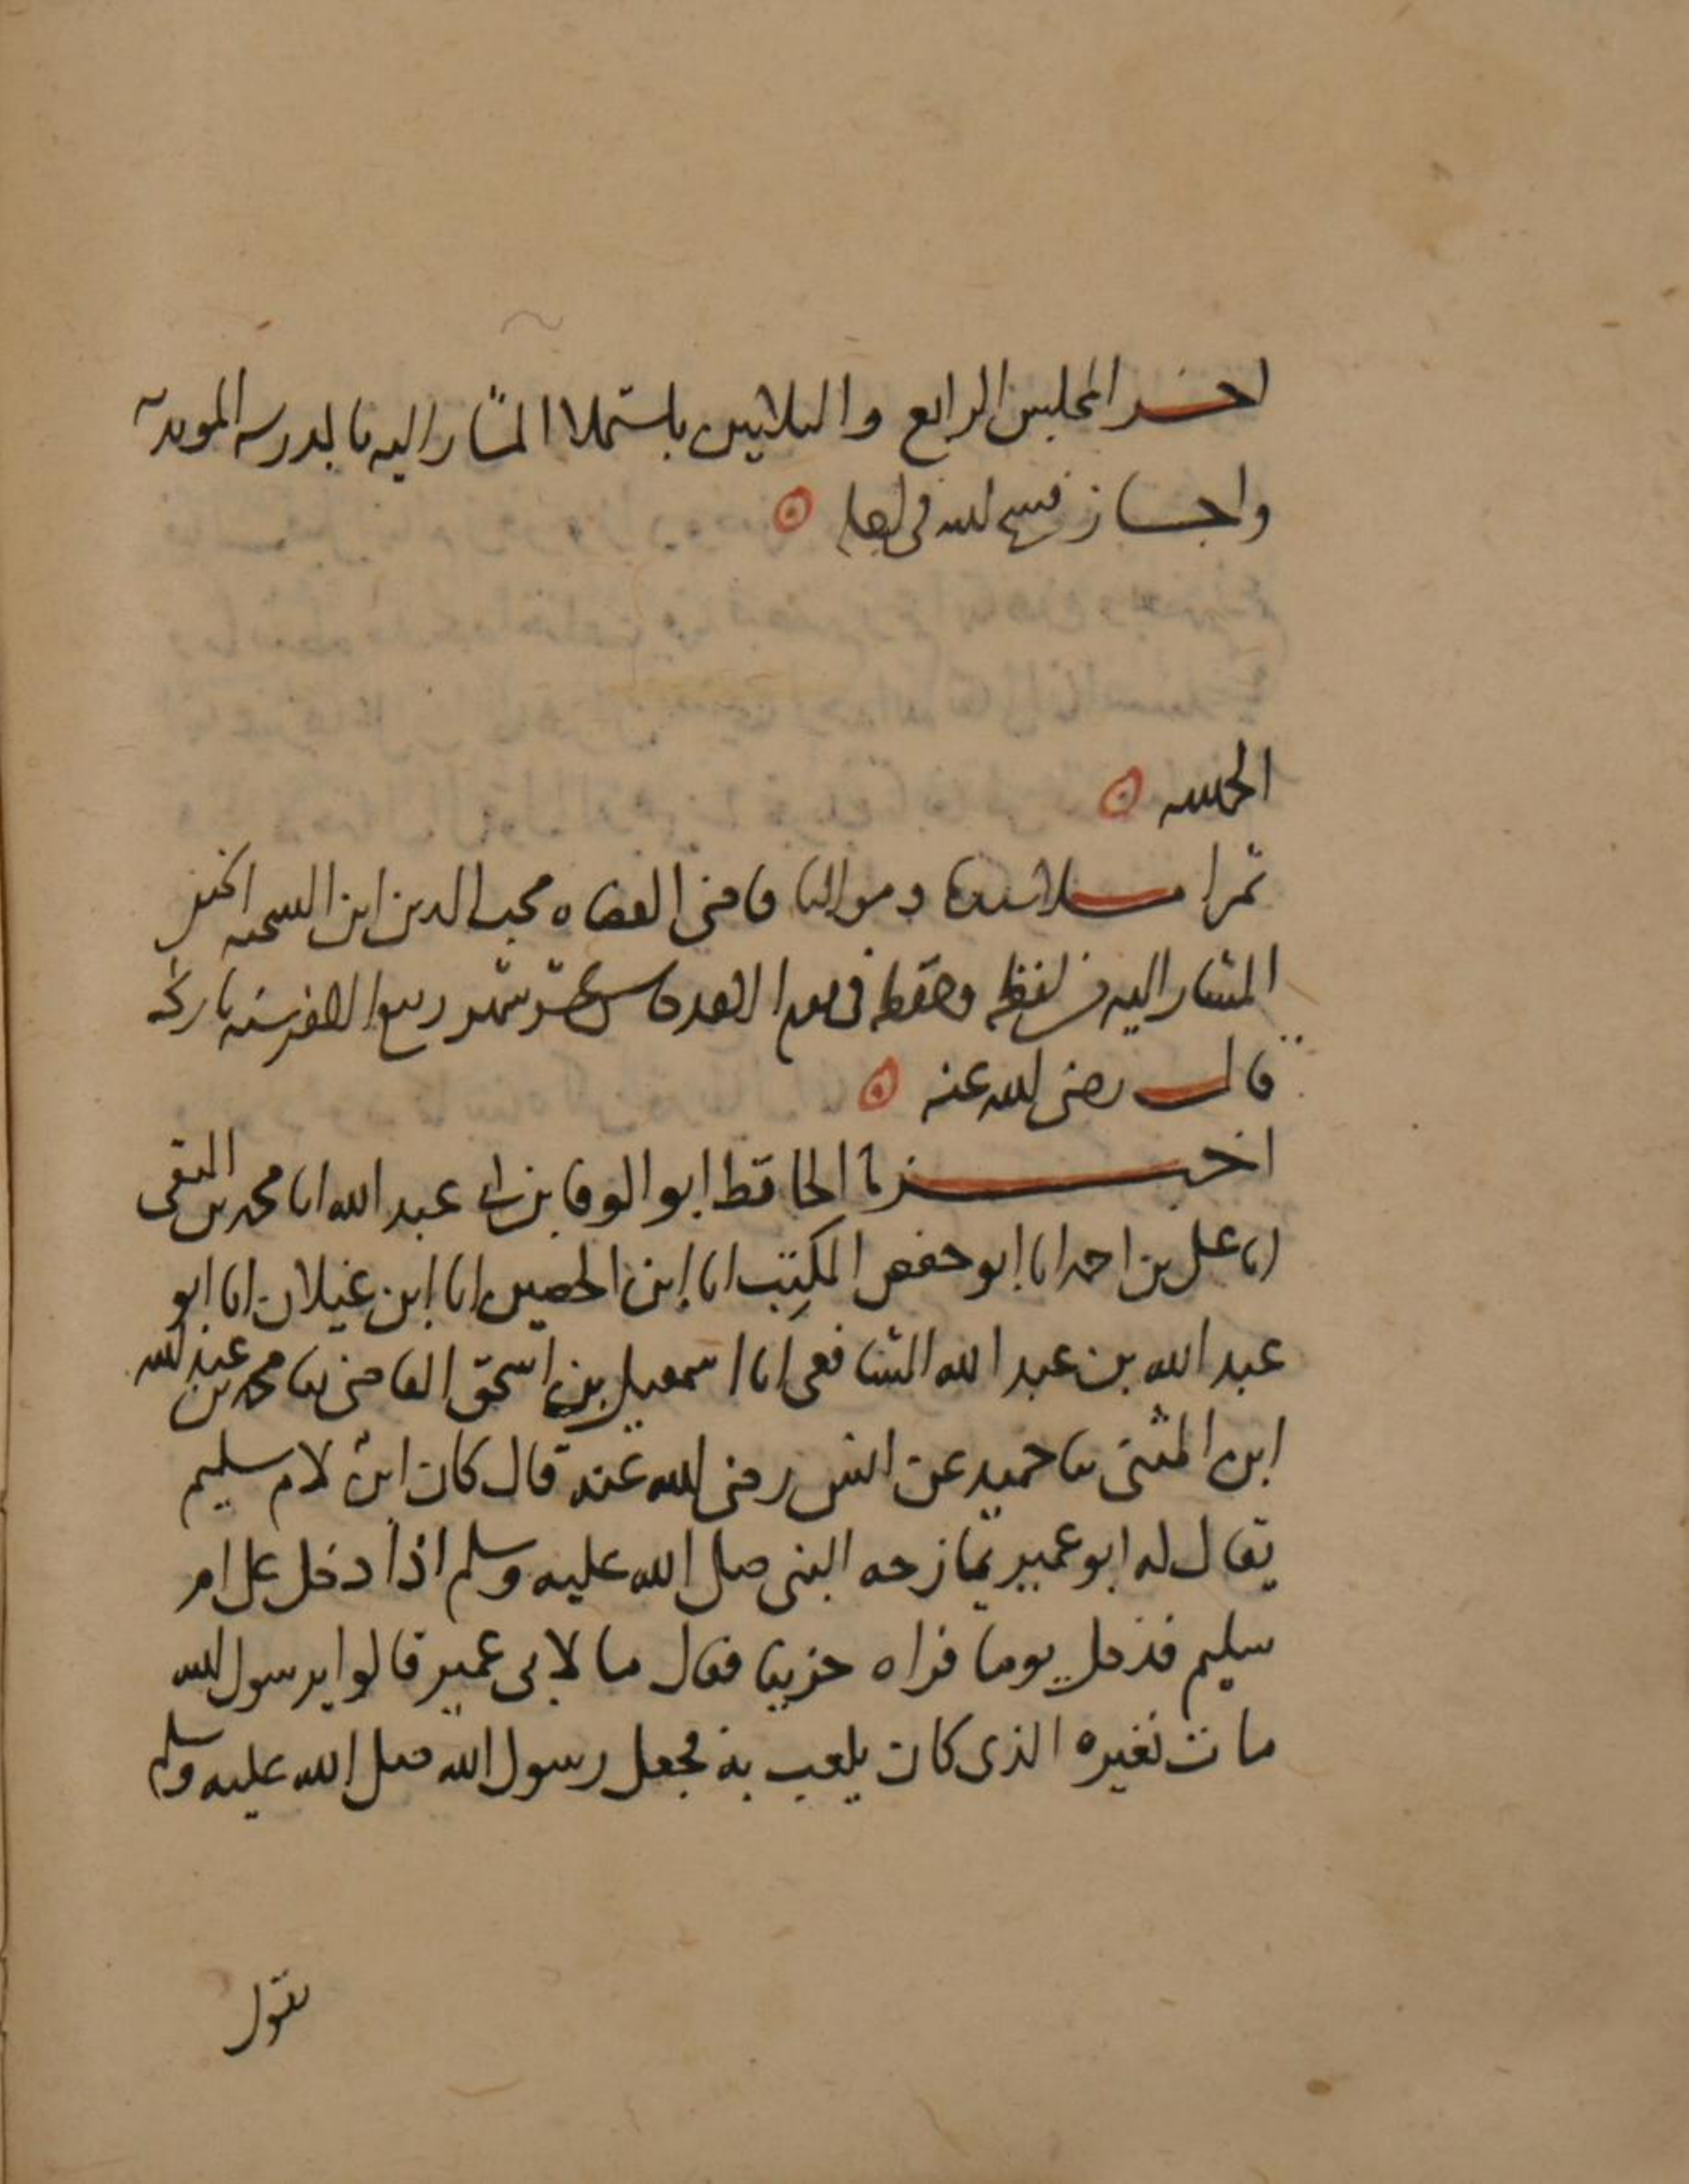 اخر المجلس الرابع والثلاثين باستملا المشار اليه بالمدرسة المويدية
واجاز فسح الله في
الحمد لله
ثم املا سيدنا ومولانا قاضي القضاة محب الدين ابن الشحنة الحنفي
المشار اليه من لفظه وحفظه في يوم الاحد عشر شهر ربيع الاخر سنة تاريخه
قال رضي الله عنه
اخبرنا الحافظ ابو الوفا بن ابي عبد الله انا محمد بن التقي
انا علي بن احمد انا ابو حفص المكتب انا ابن الحصين انا ابن غيلان انا ابو
عبد الله بن عبد الله الشافعي انا اسمعيل بن اسحق القاضي ثنا محمد بن عبد الله
ابن المثنى ثنا حميد عن انس رضي الله عنه قال كان ابن لام سليم
يقال له ابو عمير يمازحه النبي صلى الله عليه وسلم اذا دخل على ام
سليم فدخل يوما فراه حزينا فقال ما لابي عمير قالوا يرسول الله
مات نغيره الذي كان يلعب به فجعل رسول الله صلى الله عليه وسلم
يقول